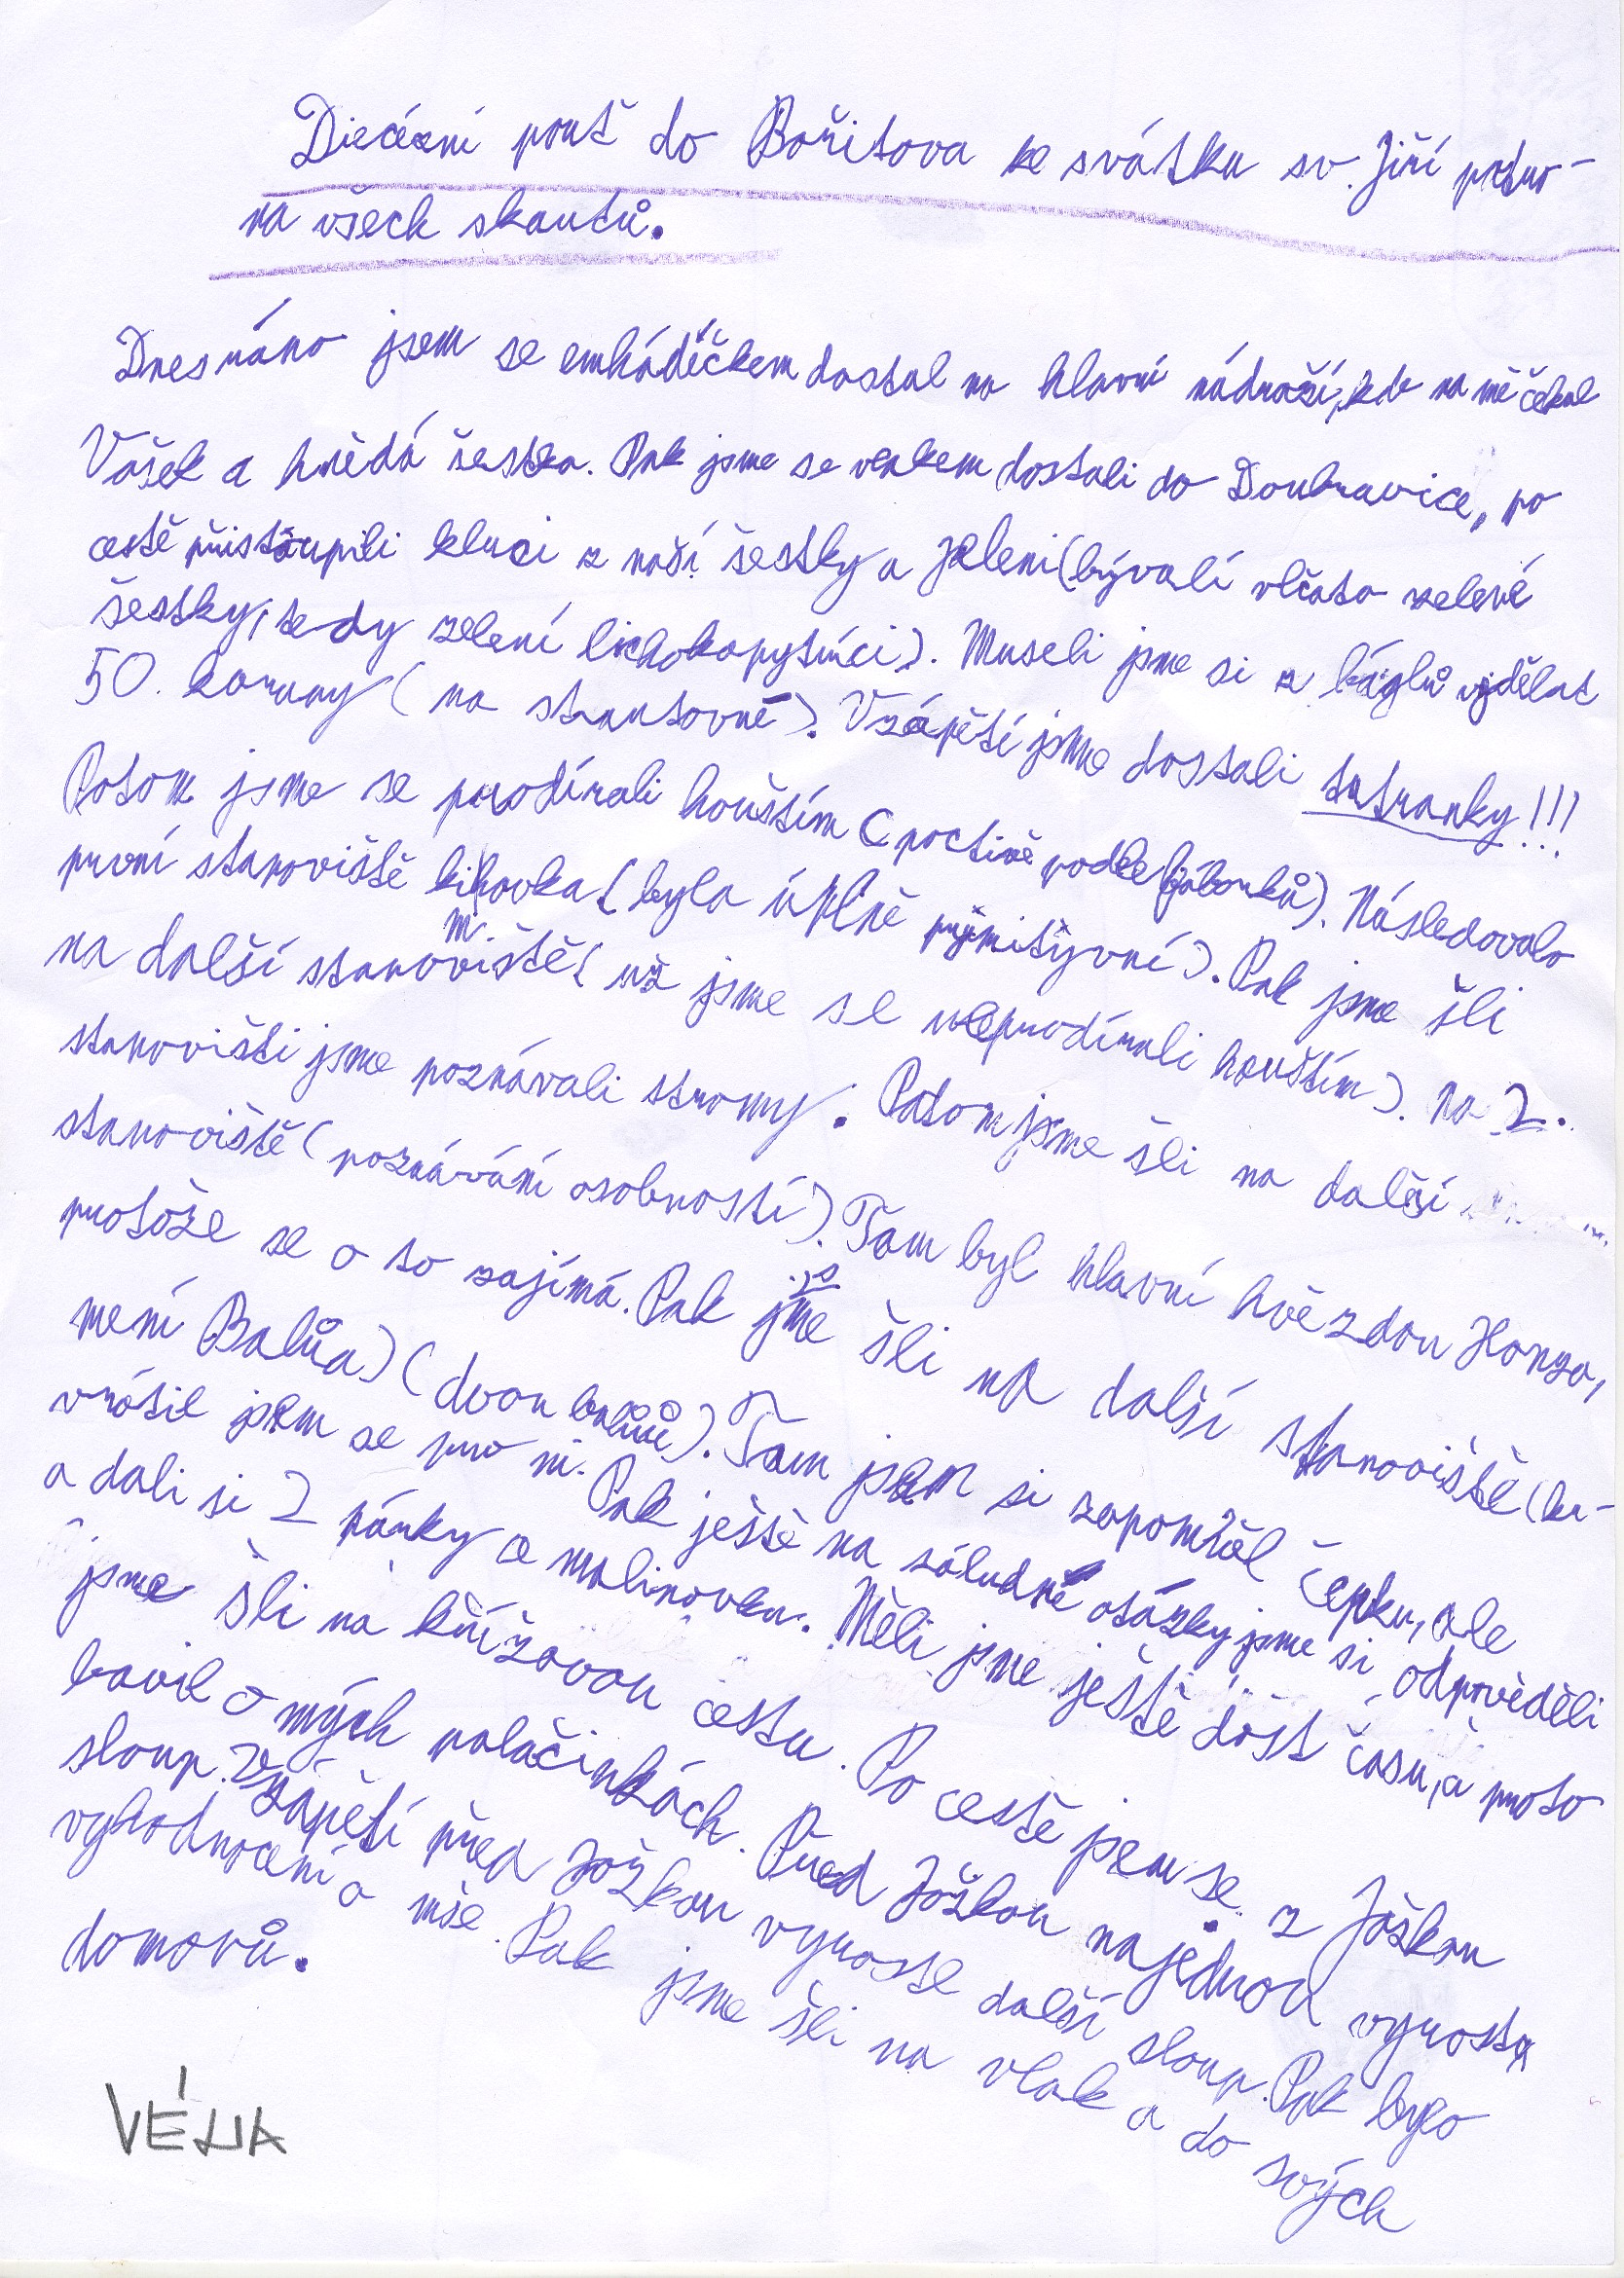 Diecézní pouť do Bořitova ke svátku sv. Jiří patro-
na všech skautů.
Dnes ráno jsem se emhádíčkem dostal na hlavní nádraží, kde na mě čekal
Vašek a hnědá šestka. Pak jsme se vlakem dostali do Doubravice, po
cestě přistoupili kluci z naší šestky a jeleni (bývalí vlčata zelené
šestky, tedy zelení lichokopytníci). Museli jsme si z báglů vydělat
50. koruny (na startovné). Vzápětí jsme dostali tatranky!!!
Potom jsme se prodírali houštím (poctivě podle fáborků). Následovalo
první stanoviště kimovka (byla úplně primityvní). Pak jsme šli
na další stanoviště (už jsme se neprodírali houštím). Na 2.
stanovišti jsme poznávali stromy. Potom jsme šli na další
stanoviště (poznávání osobností). Tam byl hlavní hvězdou Honza,
protože se o to zajímá. Pak jsme šli na další stanoviště (ka-
mení Balůa) (dvou balůů). Tam jsem si zapomněl čepku, ale
vrátil jsem se pro ni. Pak ještě na záludné otázky jsme si odpověděli
a dali si 2 párky a malinovku. Měli jsme ještě dost času, a proto
jsme šli na křížovou cestu. Po cestě jsem se z Jožkou
bavil o mých palačinkách. Před Jožkou najednou vyrostx
sloup. Vzápětí před Jožkou vyroste další sloup. Pak bylo
vyhodnocení a mše. Pak jsme šli na vlak a do svých
domovů.
VÉNA